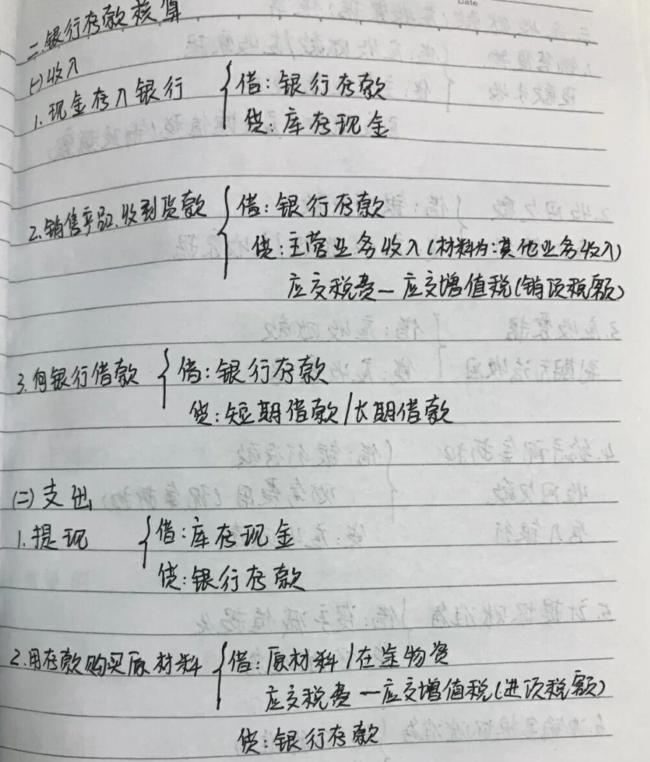 二.银行存款核算
(一)收入
1.现金存入银行 借:银行存款
贷:库存现金
2.销售产品.收到货款 借:银行存款
贷:主营业务收入(材料为:其他业务收入)
应交税费—应交增值税(销项税额)
3.向银行借款 借:银行存款
贷:短期借款/长期借款
(二)支出
1.提现 借:库存现金
贷:银行存款
2.用存款购买原材料 借:原材料/在途物资
应交税费—应交增值税(进项税额)
贷:银行存款